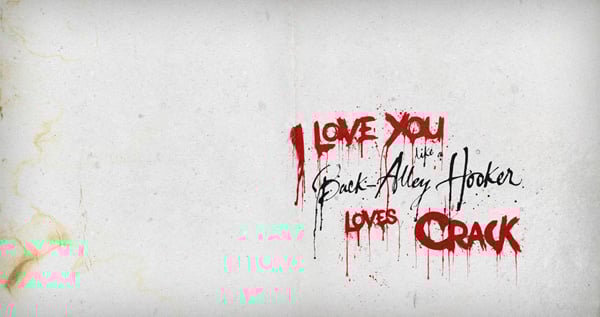 I LOVE YOU
like a
Back-Alley Hooker
LOVES CRACK